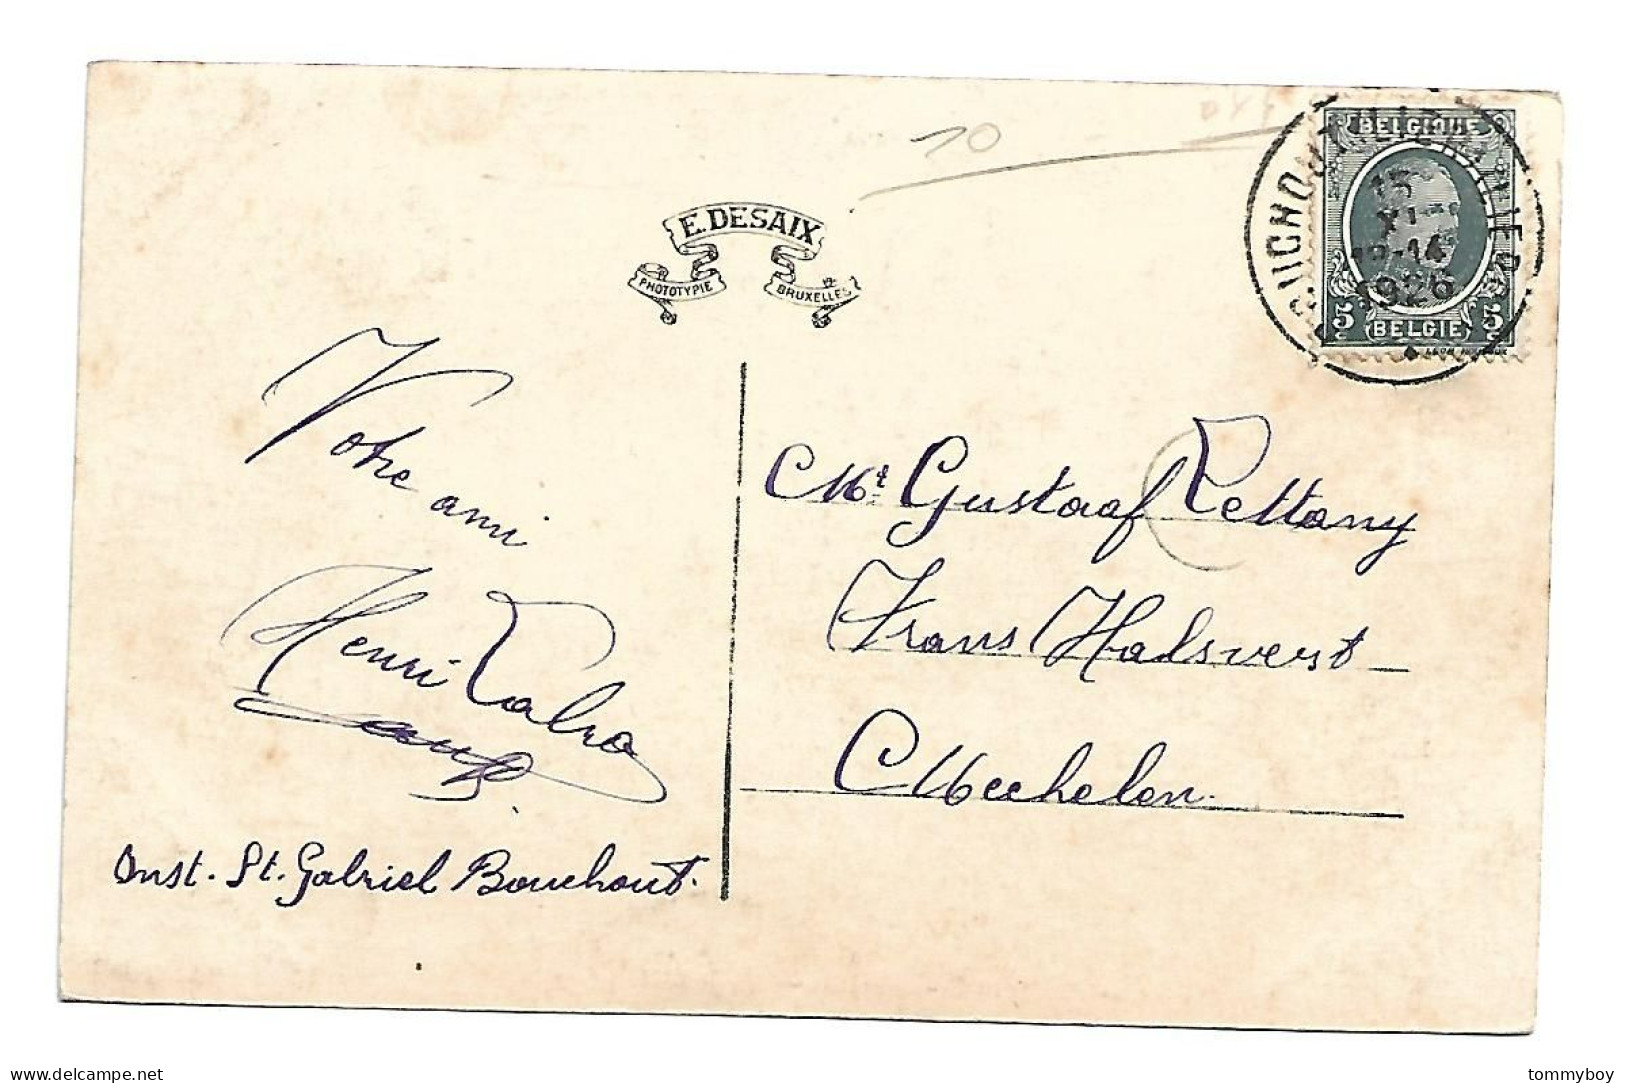 10
E. DESAIX
PHOTOTYPIE BRUXELLES
BELGIQUE
15
XI
12-14
1926
5 BELGIE 5
Votre ami
Henri
Mr Gustaaf Pettany
Frans Halsvest
Mechelen.
Inst. St. Gabriel Bouchout.
www.delcampe.net
tommyboy